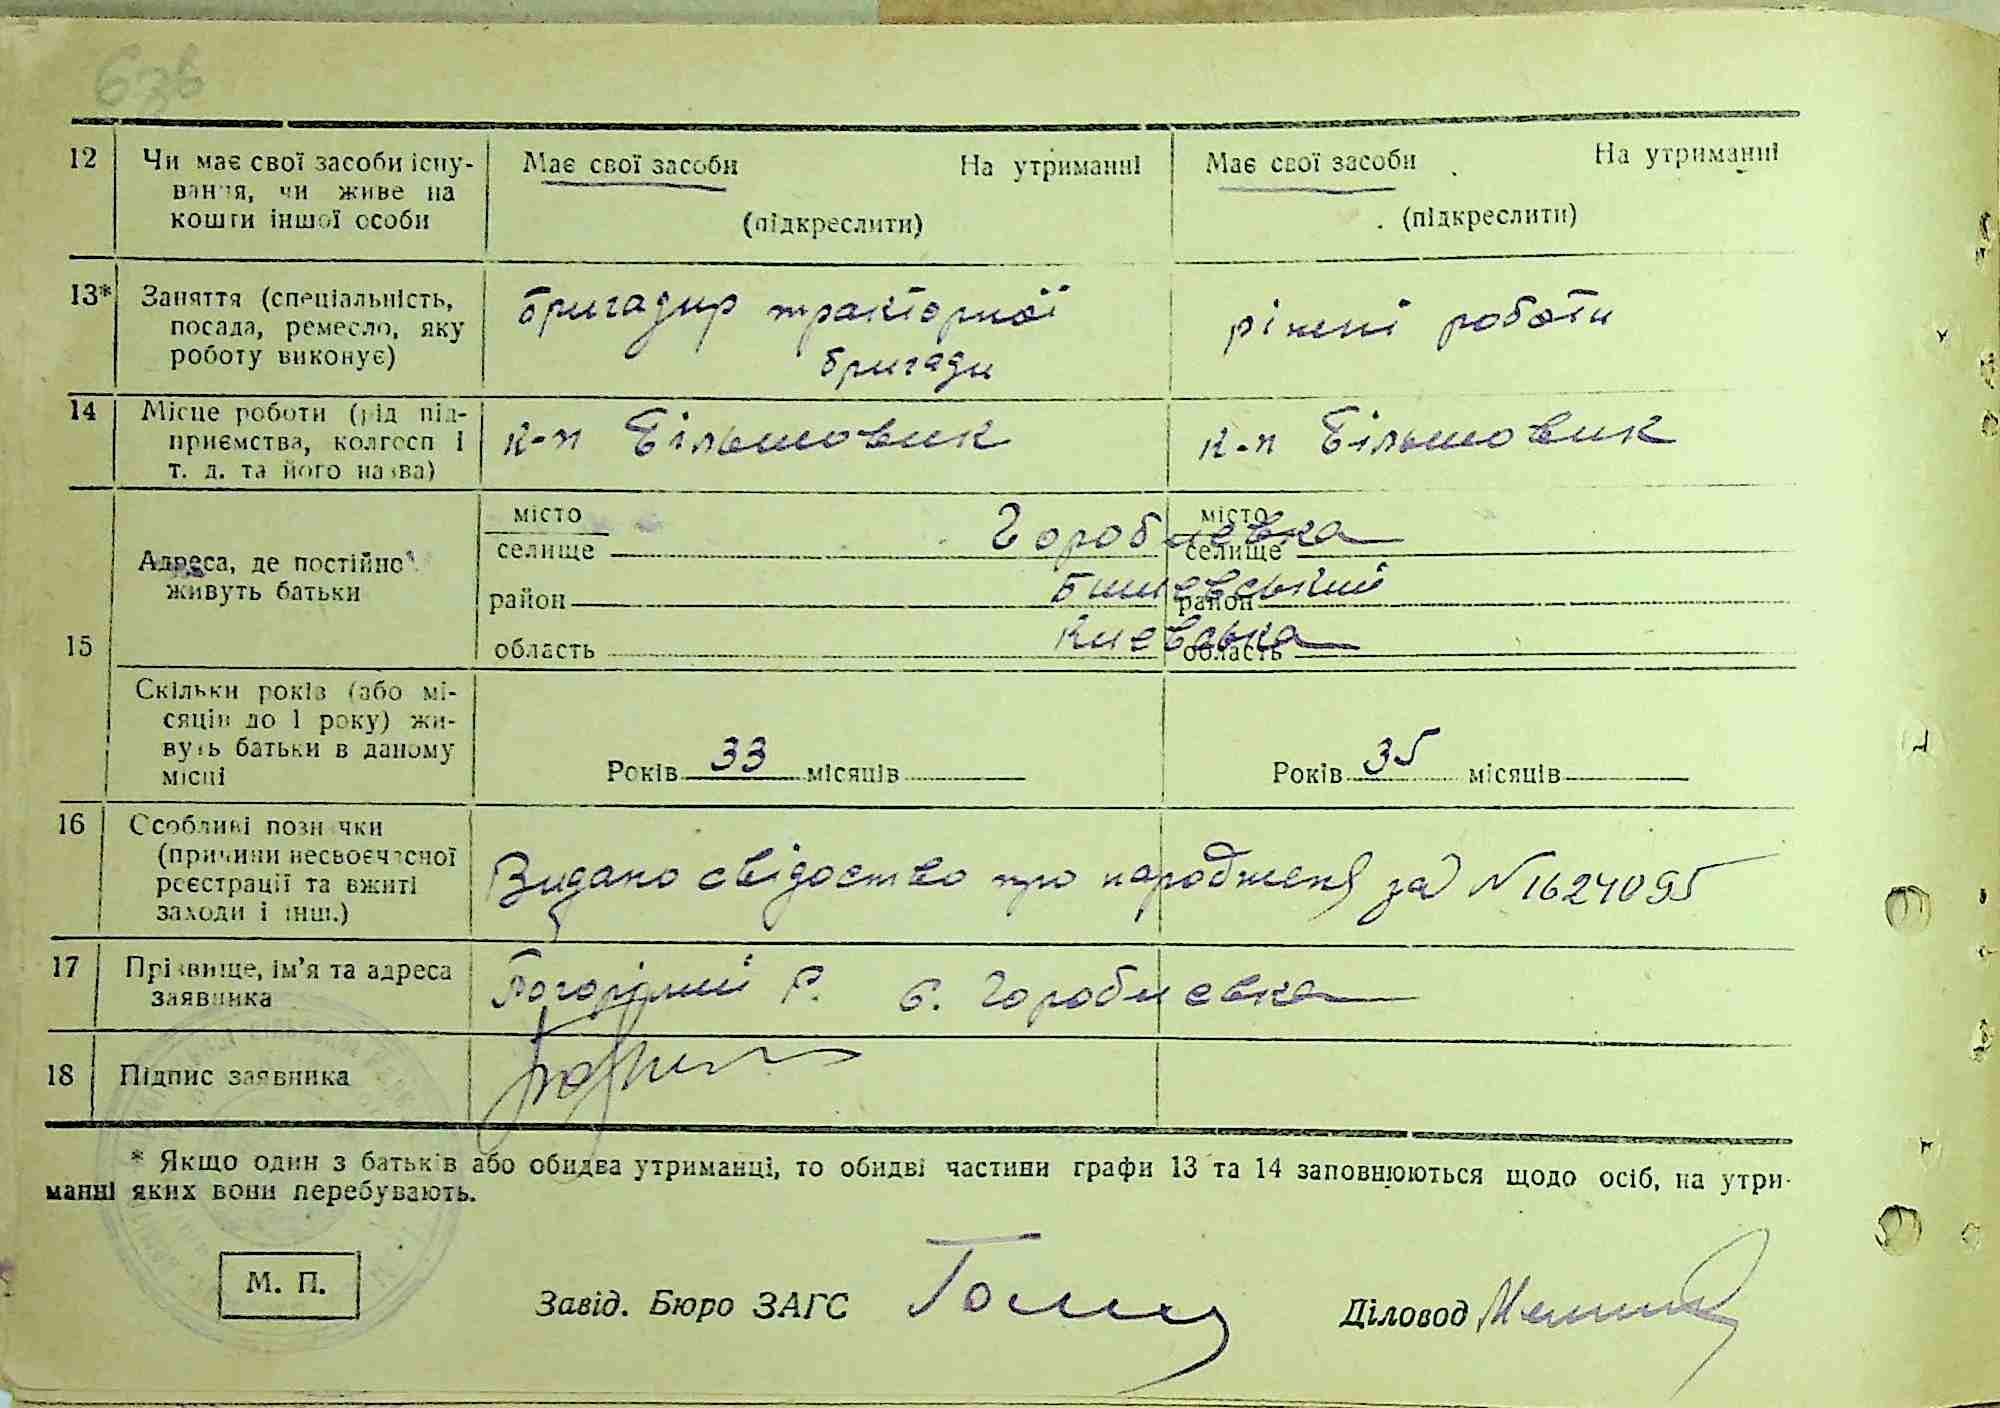 12 Чи має свої засоби існу- Має свої засоби На утриманні Має свої засоби На утриманні
вання, чи живе на
кошти іншої особи (підкреслити) (підкреслити)
13* Заняття (спеціальність, бригадир тракторної різні роботи
посада, ремесло, яку
роботу виконує) бригади
14 Місце роботи (рід під- к-п Більшовик к-п Більшовик
приємства, колгосп і
т. д. та його назва)
місто місто
Адреса, де постійно селище Горобиевка селище
живуть батьки район Бишевський район
15 область Киевська область
Скільки років (або мі-
сяців до 1 року) жи-
вуть батьки в даному
місці Років 33 місяців Років 35 місяців
16 Особливі позначки
(причини несвоєчасної
реєстрації та вжиті Видано свідоство про народженя за N 1624095
заходи і інш.)
17 Прізвище, ім’я та адреса Погорілий Г. с. Горобиевка
заявника
18 Підпис заявника
* Якщо один з батьків або обидва утриманці, то обидві частини графи 13 та 14 заповнюються щодо осіб, на утри-
манні яких вони перебувають.
М. П. Завід. Бюро ЗАГС Діловод